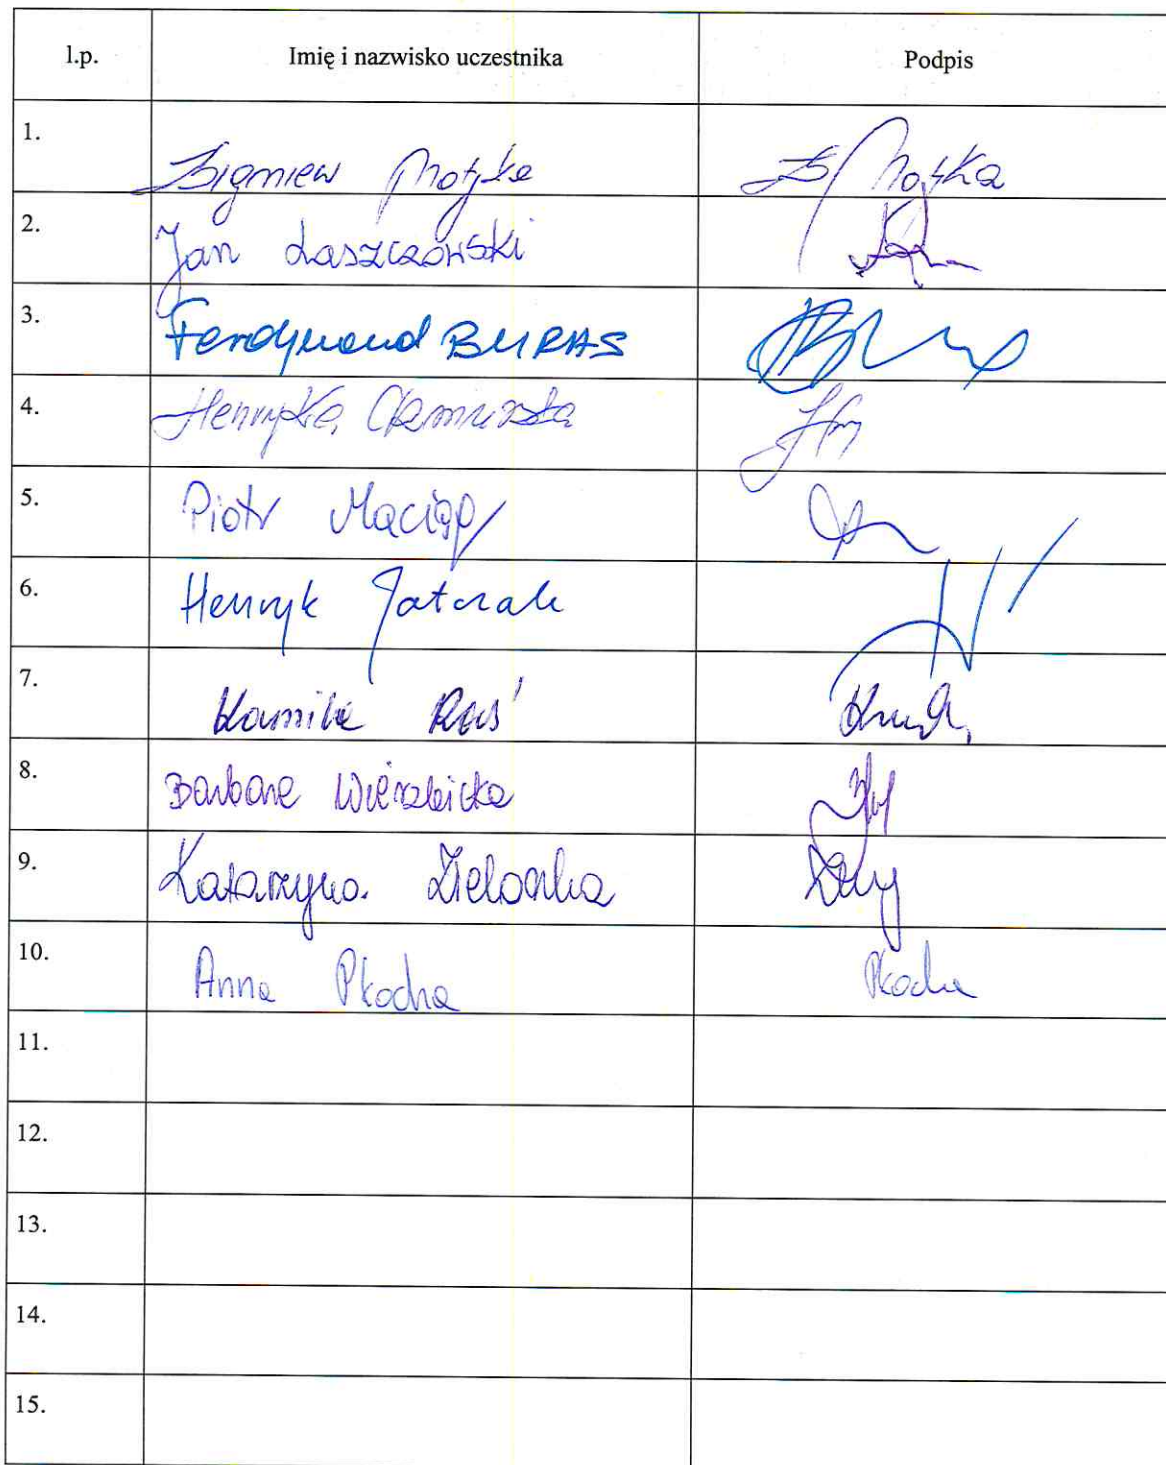 l.p. Imię i nazwisko uczestnika Podpis
1. Zbigniew Motyka Motyka
2. Jan Łaszczówski
3. Ferdynand BURAS
4. Henryka
5. Piotr Maciąg
6. Henryk Jatczak
7. Kamila Raś
8. Barbara Wierzbicka
9. Katarzyna Zielonka
10. Anna Płocha Płocha
11.
12.
13.
14.
15.